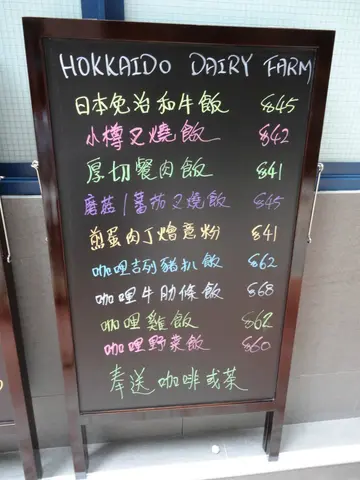 HOKKAIDO DAIRY FARM
日本色治和牛飯 $45
小樽叉燒飯 $42
厚切餐肉飯 $41
蘑菇/蕃茄叉燒飯 $45
煎蛋肉丁燴意粉 $41
咖哩吉列豬扒飯 $62
咖哩牛肋條飯 $68
咖哩雞飯 $62
咖哩野菜飯 $60
奉送咖啡或茶